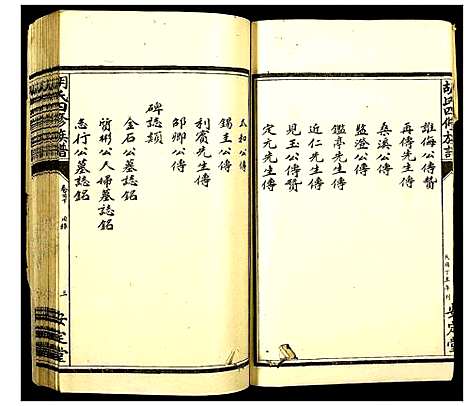 胡氏四修族譜
民國丁丑年刊
安定堂
誰侮公傳贊
再傳先生傳
桑溪公傳
監澄公傳
鑑亭先生傳
近仁先生傳
見玉公傳贊
定元先生傳
太和公傳
錫圭公傳
利賓先生傳
邵卿公傳
碑誌類
金石公墓誌銘
質彬公人婦墓誌銘
志行公墓誌銘
胡氏四修族譜
三
安定堂